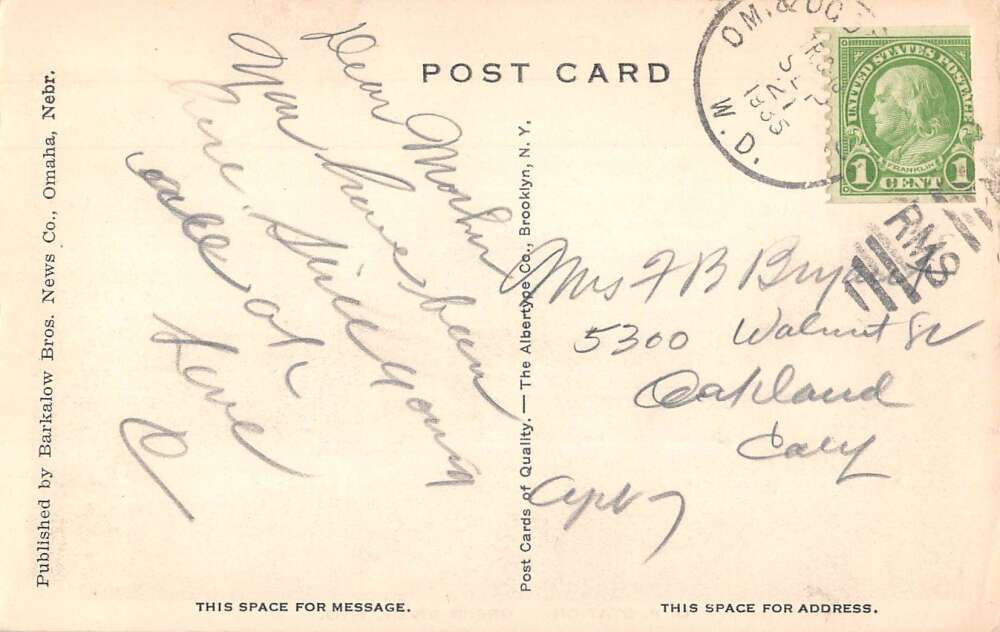 POST CARD
OM. & OG
TR
SEP
21
1935
W. D.
RMS
UNITED STATES POSTAGE
FRANKLIN
1 CENT 1
Dear Mother
You have been
here. Still going
Love
Mrs F B
5300 Walnut St
Oakland
Calif
Apt 7
Published by Barkalow Bros. News Co., Omaha, Nebr.
Post Cards of Quality. — The Albertype Co., Brooklyn, N. Y.
THIS SPACE FOR MESSAGE.
THIS SPACE FOR ADDRESS.